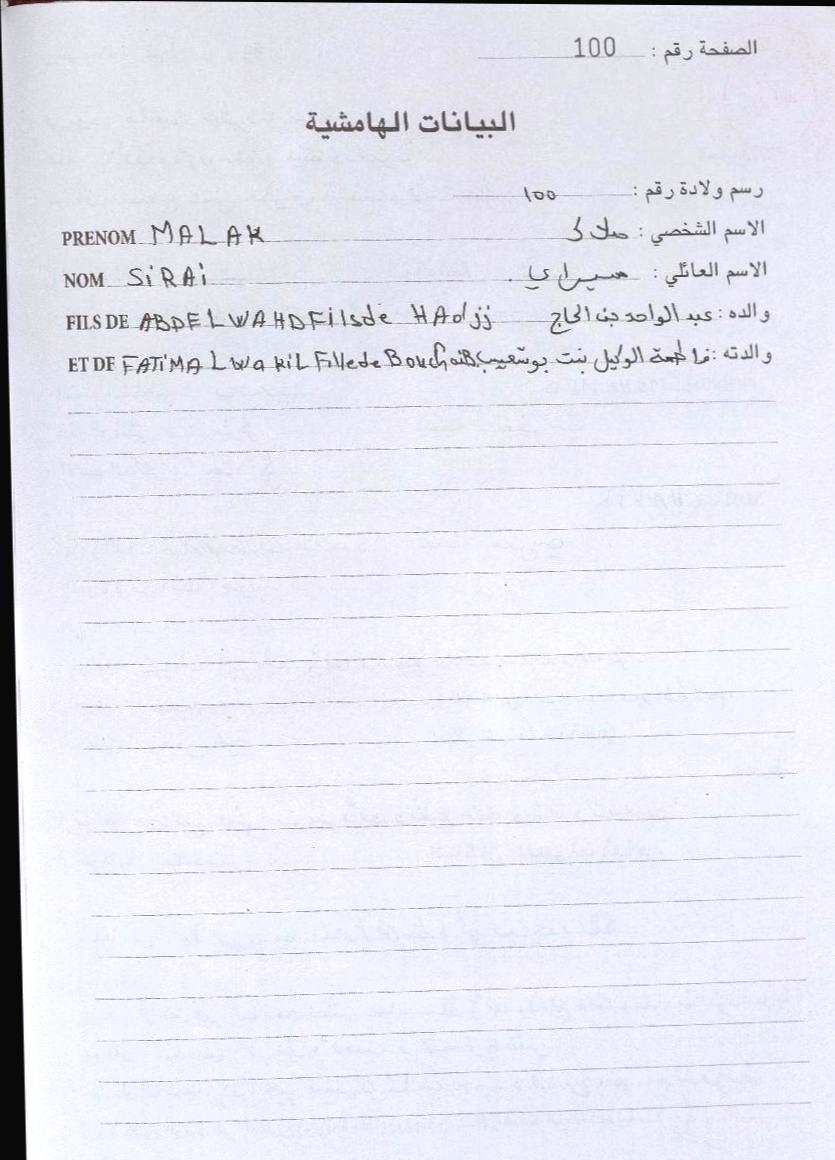 الصفحة رقم : 100
البيانات الهامشية
رسم ولادة رقم : 100
PRENOM MALAK الاسم الشخصي : ملاك
NOM SiRAi الاسم العائلي : سيراي
FILS DE ABDELWAHD Fils de HAdjj والده : عبد الواحد بن الحاج
ET DE FATiMA LWakiL Fille de Bouchaib والدته : فاطمة الوكيل بنت بوشعيب